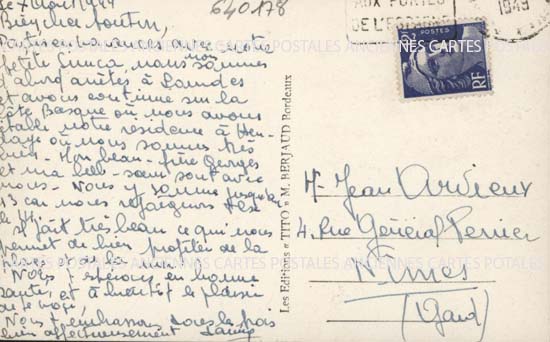 Le 7 Août 1949
640178
Bien cher
Partis en vacances avec notre
petite Simca, nous nous sommes
alors arrêtés à Lourdes
et avons continué sur la
côte Basque où nous avons
établi notre résidence à Hen-
daye où nous sommes très
bien. Mon beau-frère Georges
et ma belle-sœur sont avec
nous. Nous y sommes jusqu'au
13 car nous rejoignons
le 14.
Il fait très beau ce qui nous
permet de bien profiter de la
plage et de la mer.
Nous t'espérons en bonne
santé et à bientôt le plaisir
de te voir.
Nous t'embrassons tous les trois
bien affectueusement
Les Editions « TITO » M. BERJAUD Bordeaux
AUX PORTES
DE L'ESPAGNE
1949
POSTES
RF
Mr Jean Ardieux
4 Rue Général Perrier
Nîmes
(Gard)
ANCIENNES CARTES POSTALES ANCIENNES CARTES POSTALES